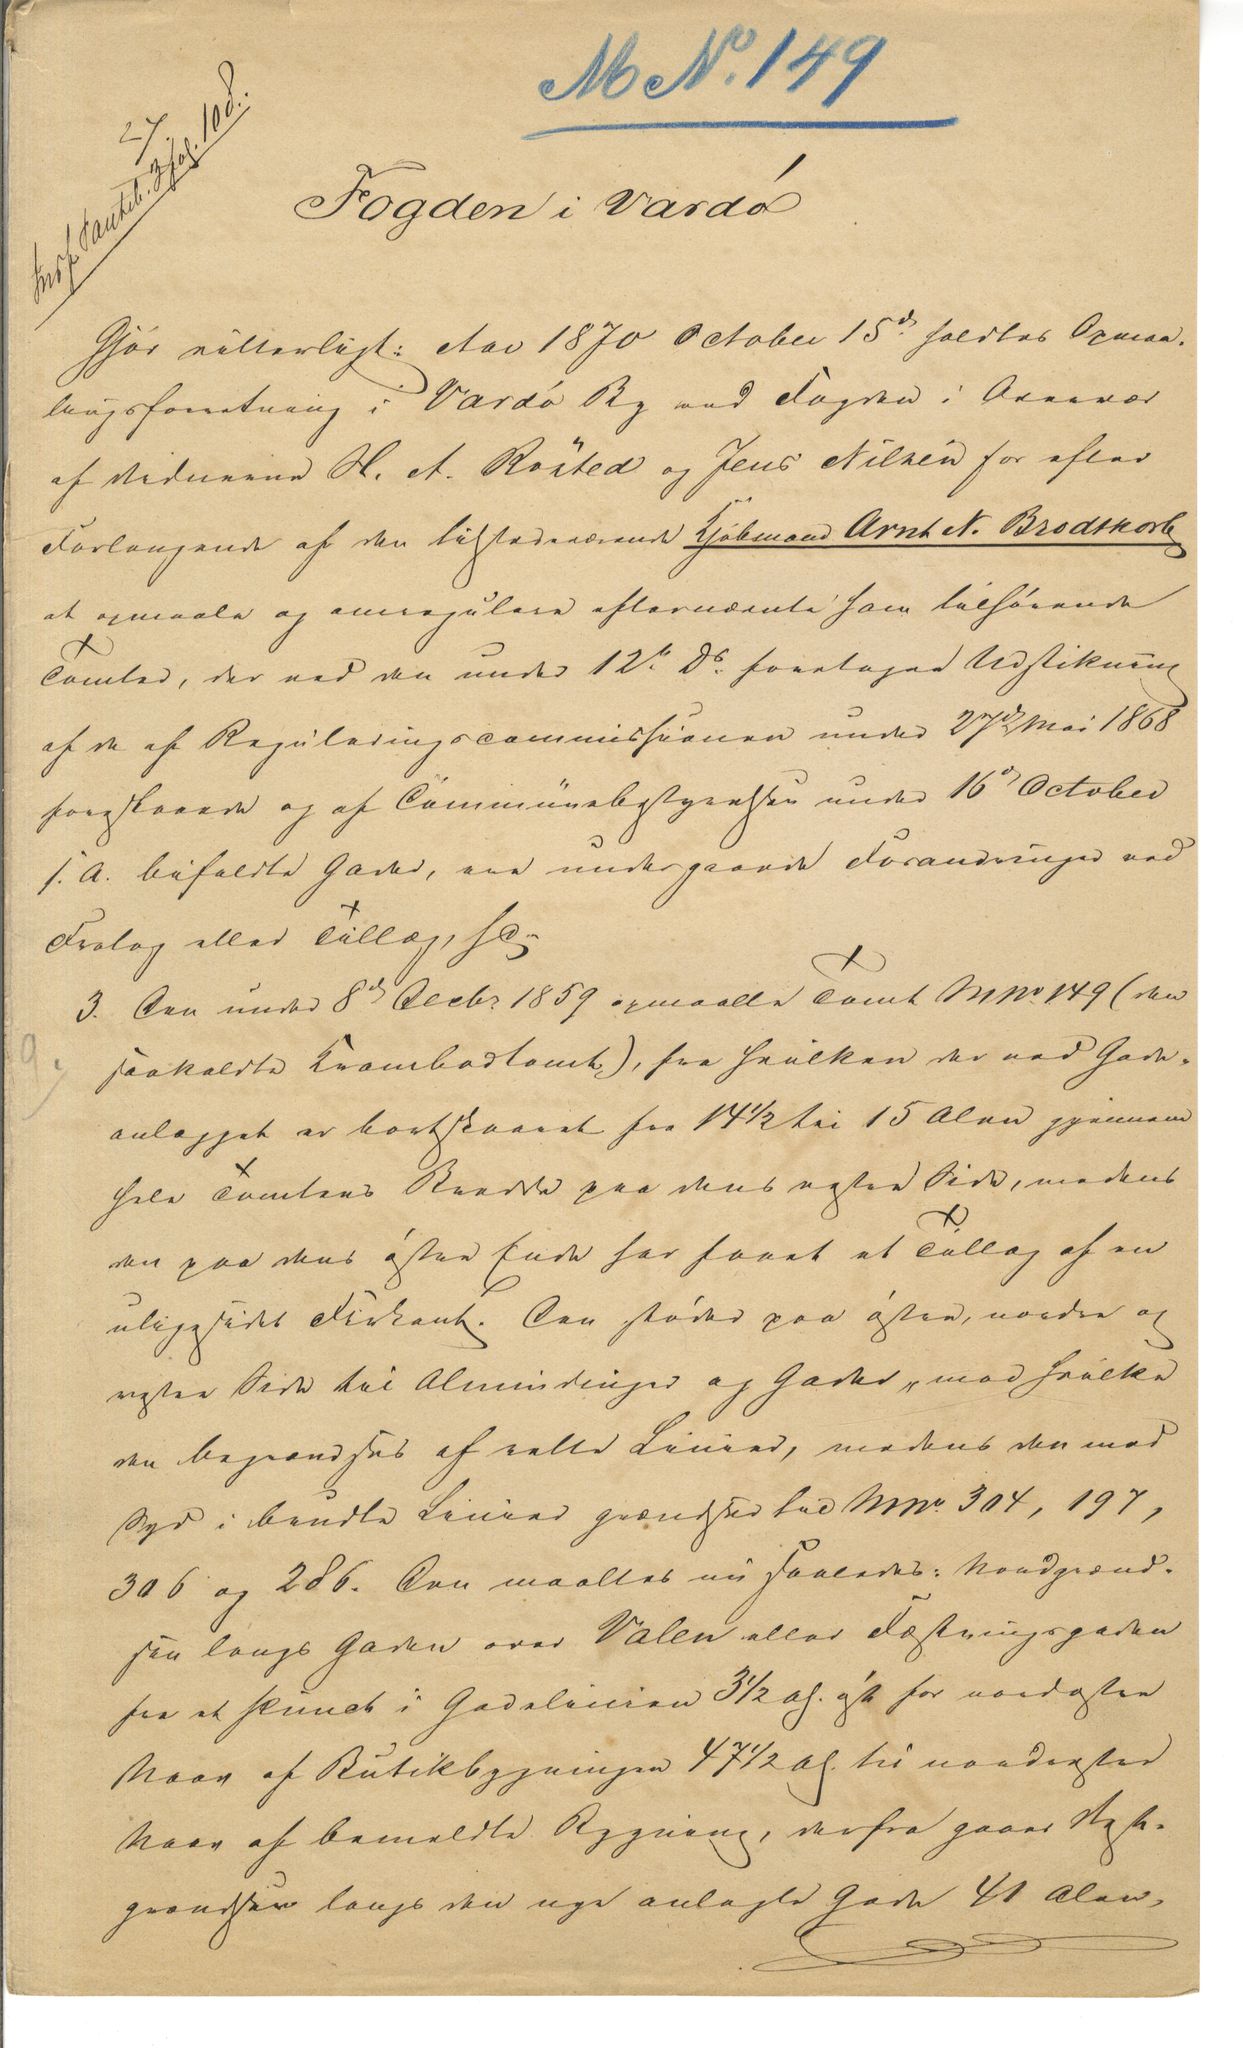 M No. 149
27.
Inds. Panteb. 3 fol. 108.
Fogden i Vardö
Gjör vitterligt: Aar 1870 October 15de holdtes Opmaa-
lingsforretning i Vardö By ved Fogden i Overvær
af Vidnerne H. A. Rösted og Jens Nilsen for efter
Forlangende af den tilstedeværende Kjöbmand Arnt N. Brodtkorb
at opmaale og omregulere efternævnte ham tilhörende
Tomter, der ved den under 12te Ds. foretagne Udstikning
af de af Reguleringscommissionen under 27de Mai 1868
foreslaaede og af Communebestyrelsen under 16de October
s. A. bifaldte Gader, ere undergaaede Forandringer ved
Fralag eller Tillæg, sc.
3. Den under 8de Decbr 1859 opmaalte Tomt M No 149 (den
saakaldte Krambodtomt), fra hvilken der ved Gade-
anlægget er bortskaaret fra 14½ til 15 Alen gjennem
hele Tomtens Bredde paa dens vestre Side, medens
den paa dens östre Ende har faaet et Tillæg af en
uligesidet Firkant. Den stöder paa östre, nordre og
vestre Side til Almindinger og Gader, mod hvilke
den begrændses af rette Linier, medens den mod
Syd i brudte Linier grændser til M No. 304, 197,
306 og 286. Den maaltes nu saaledes: Nordgrænd-
sen langs Gaden over Valen eller Fæstningsgaden
fra et Punct i Gadelinien 3½ Al. öst for nordöstre
Nov af Butikbygningen 47½ Al. til nordvestre
Nov af bemeldte Bygning, derfra gaar Vest-
grændsen langs den nye anlagte Gade 41 Alen,